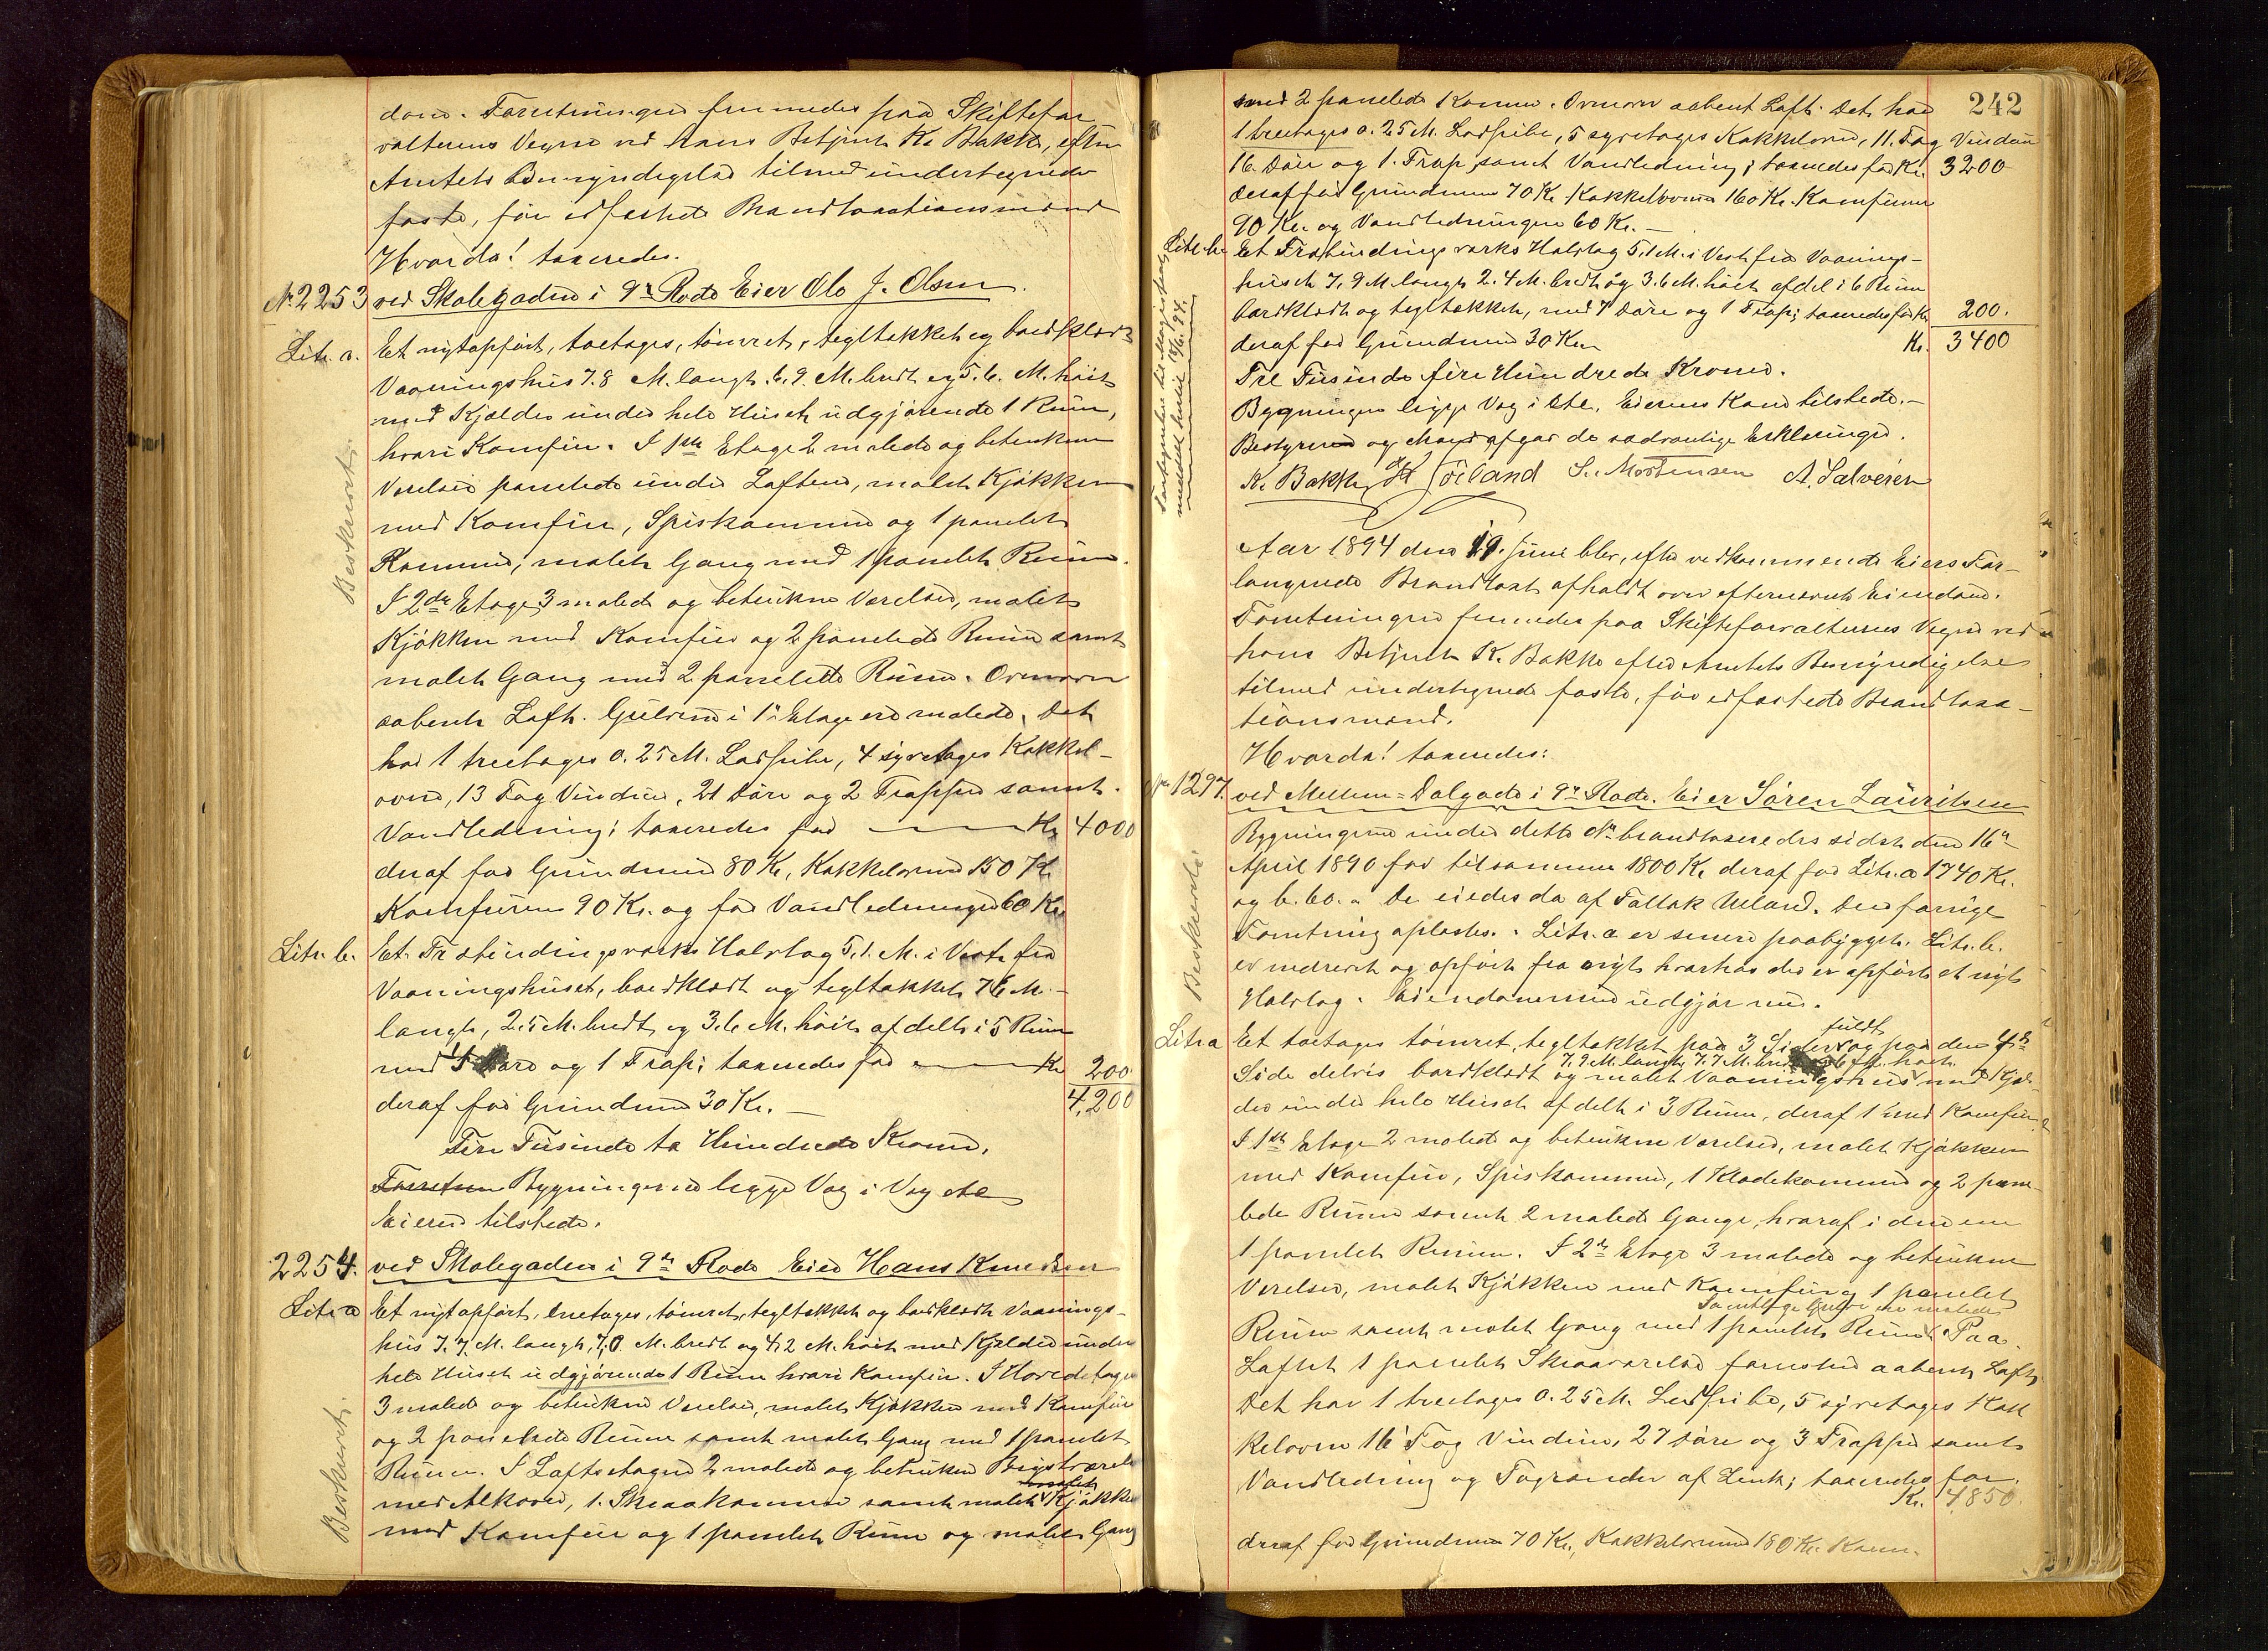 dom. Forretningen fremmedes paa Skiftefor
valterens Vegne ved hans Betjent K. Bakke, efter
Amtets Bemyndigelse tilmed undertegnede
faste, før edfæstede Brandtaxationsmænd
Hvorda! taxeredes.
No 2253 ved Skolegaden i 9de Rode Eier Ole J. Olsen.
Litr. a. Et nyt opført, toetages, tømret, tegltækket og bordklædt
Vaaningshus 7.8 M. langt, 6.9. M. bredt og 5.6. M. høit
med Kjælder under hele Huset udgjørende 1 Rum,
hvori Komfur. I 1ste Etage 2 malede og betrukne
Værelser panelede under Loftene, malet Kjøkken
med Komfur, Spiskammer og 1 panelet
Kammer, malet Gang med 1 panelet Rum.
I 2den Etage 3 malede og betrukne Værelser, malet
Kjøkken med Komfur og 2 panelede Rum samt
malet Gang med 2 panelede Rum. Ovenover
aabent Loft. Gulvene i 1ste Etage ere malede. Det
har 1 treetages 0.25 M. Ladpibe, 4 syretages Kakkel-
ovne, 13 Fag Vinduer, 21 Døre og 2 Trapper samt
Vandledning; taxeredes for Kr. 4000
deraf for Grundmur 80 Kr, Kakkelovne 150 Kr
Komfurer 90 Kr. og for Vandledningen 60 Kr
Litr. b. Et Træbindingsværks Halvtag 5,1. M. i Vest fra
Vaaningshuset, bordklædt og tegltækket 7.6 M.
langt, 2.5 M. bredt og 3.6 M. høit afdelt i 5 Rum
med Døre og 1 Trap; taxeredes for Kr 200
deraf for Grundmur 30 Kr. 4,200
Fire Tusinde to Hundrede Kroner.
Forretnin Bygningerne ligge Væg i Væg etc
Eieren tilstede.
2254. ved Skolegaden i 9de Rode Eier Hans Knudsen
Litr a Et nyt opført, enetages, tømret, tegltækket og bordklædt Vaanings-
hus 7.7. M. langt, 7,0 M. bredt og 4,2 M. høit med Kjælder under
hele Huset udgjørende 1 Rum hvori Komfur. I Hovedetagen
3 malede og betrukne Værelser, malet Kjøkken med Komfur
og 2 panelede Rum samt malet Gang med 1 panelet
Rum. I Loftsetagen 2 malede og betrukne Bigsværelser
med Alkover, 1. Skraakammer samt malet Kjøkken
med Komfur og 1 panelet Rum og malet Gang
Beskueret.
Beskueret.
242
med 2 panelede Kamre. Ovenover aabent Loft. Det har
1 treetages 0.25 M. Ladpibe, 5 syretages Kakkelovne, 11. Fag Vinduer
16. Døre og 1. Trap samt Vandledning; taxeredes for Kr. 3200
deraf for Grundmur 70 Kr. Kakkelovne 160 Kr. Komfurer
90 Kr. og Vandledningen 60 Kr. —
Litr. b. Et Træbindingsværks Halvtag 5,1 M. i Vest fra Vaanings-
huset 7,9 M. langt 2.4 M. bredt og 3.6 M. høit afdel i 6 Rum
bordklædt og tegltækket, med 7 Døre og 1 Trap; taxeredes for Kr. 200.
deraf for Grundmur 30 Kr. Kr. 3400
Tre Tusinde fire Hundrede Kroner.
Bygningen ligge Væg i etc. Eierens Kone tilstede. —
Bestyreren og Mænd afgav de sædvanlige Erklæringer.
K. Bakke S. Mortensen A. Salvesen
Aar 1894 den 19. Juni blev, efter vedkommende Eiers For-
langende Brandtaxt afholdt over efternævnte Eiendom.
Forretningen fremmedes paa Skifteforvalterens Vegne ved
hans Betjent K. Bakke efter Amtets Bemyndigelse
tilmed undertegnede faste, før edfæstede Brandtaxa-
tionsmænd.
Hvorda! taxeredes:
No 1297. ved Mellem-Dalgade i 9de Rode. Eier Søren Lauritsen
Bygningerne under dette No brandtaxeredes sidst den 16de
April 1890 for tilsammen 1800 Kr. deraf for Litr. a 1740 Kr.
og b. 60. De eiedes da af Tallak Ueland. Den forrige
Forretning oplæstes. Litr. a er senere paabygget. Litr. b.
er nedrevet og opført fra nyt hvorhos der er opført et nyt
Halvtag. Eiendommen udgjør nu.
Litr a Et toetages tømret, tegltækket paa 3 Sider fuldt og paa den 4de
Side delvis bordklædt og malet Vaaningshus 7.9 M. langt, 7.7 M. bredt høit med Kjæl-
der under hele Huset afdelt i 3 Rum, deraf 1 med Komfur.
I 1ste Etage 2 malede og betrukne Værelser, malet Kjøkken
med Komfur, Spiskammer, 1 Klædekammer og 2 pane-
lede Rum samt 2 malede Gange, hvoraf i den ene
1 panelet Rum. I 2den Etage 3 malede og betrukne
Værelser, malet Kjøkken med Komfur og 1 panelet
Rum samt malet Gang med 1 panelet Rum. Samtlige Gulve ere malede Paa
Loftet 1 panelet Skraaværelse forresten aabent Loft.
Det har 1 treetages 0.25 M. Ladpibe, 5 syretages Kak
kelovne 16 Fag Vinduer, 27 Døre og 3 Trapper samt
Vandledning og Tagrender af Zink; taxeredes for
Kr. 4850.
deraf for Grundmur 70 Kr., Kakkelovne 180 Kr. Kom-
Beskueret.